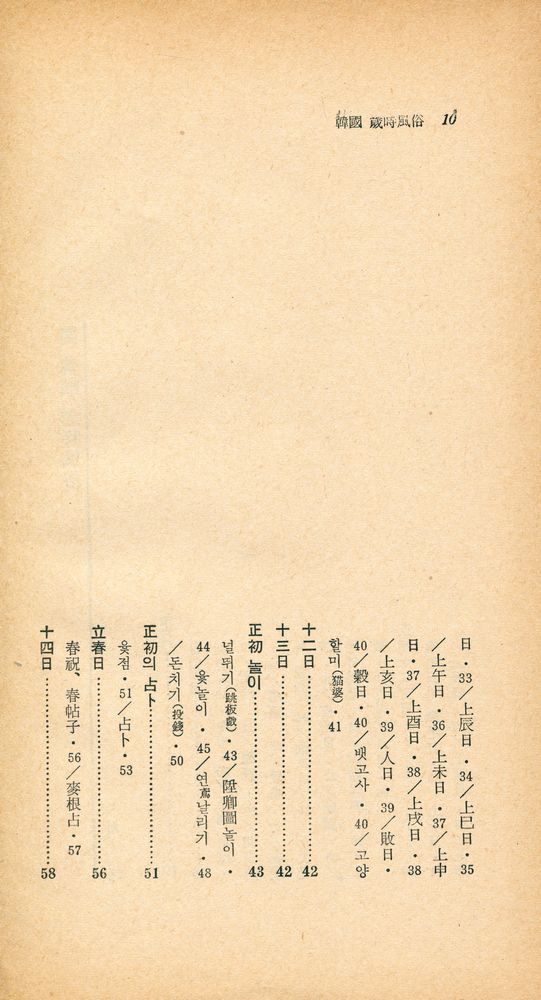 韓國 歲時風俗 10
日·33／上辰日·34／上巳日·35
／上午日·36／上未日·37／上申
日·37／上酉日·38／上戌日·38
／上亥日·39／人日·39／敗日·
40／穀日·40／뱃고사·40／고양
할미(猫婆)·41
十二日 42
十三日 42
正初 놀이 43
널뛰기(跳板戱)·43／陞卿圖놀이·
44／윷놀이·45／연鳶날리기·48
／돈치기(投錢)·50
正初의 占卜 51
윷점·51／占卜·53
立春日 56
春祝、春帖子·56／麥根占·57
十四日 58